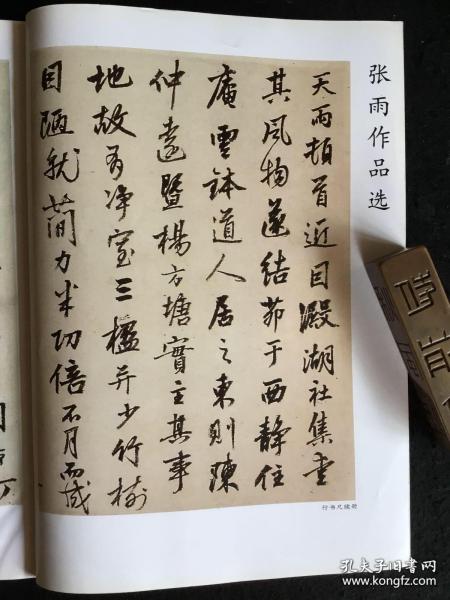 张雨作品选
天雨頓首近因澱湖社集愛
其風物遂結茆于西静住
庵雲鉢道人居之東則陳
仲遠暨楊方塘實主其事
地故有净室三楹并少竹樹
因陋就簡力半功倍不月而成
行书尺牍
孔夫子旧书网
www.kongfz.com